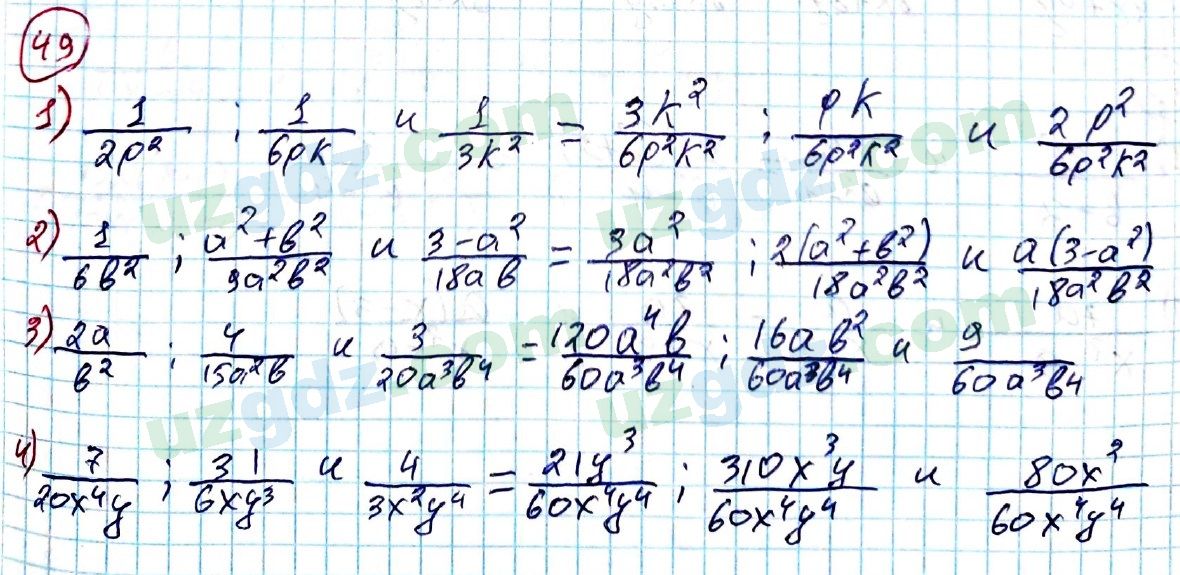 49
1) 1/2p² ; 1/6pk и 1/3k² = 3k²/6p²k² ; pk/6p²k² и 2p²/6p²k²
2) 1/6в² ; a²+в²/9a²в² и 3-a²/18aв = 3a²/18a²в² ; 2(a²+в²)/18a²в² и a(3-a²)/18a²в²
3) 2a/в² ; 4/15a²в и 3/20a³в⁴ = 120a⁴в/60a³в⁴ ; 16aв²/60a³в⁴ и 9/60a³в⁴
4) 7/20x⁴y ; 31/6xy³ и 4/3x²y⁴ = 21y³/60x⁴y⁴ ; 310x³y/60x⁴y⁴ и 80x²/60x⁴y⁴
uzgdz.com
uzgdz.com
uzgdz.com
uzgdz.com